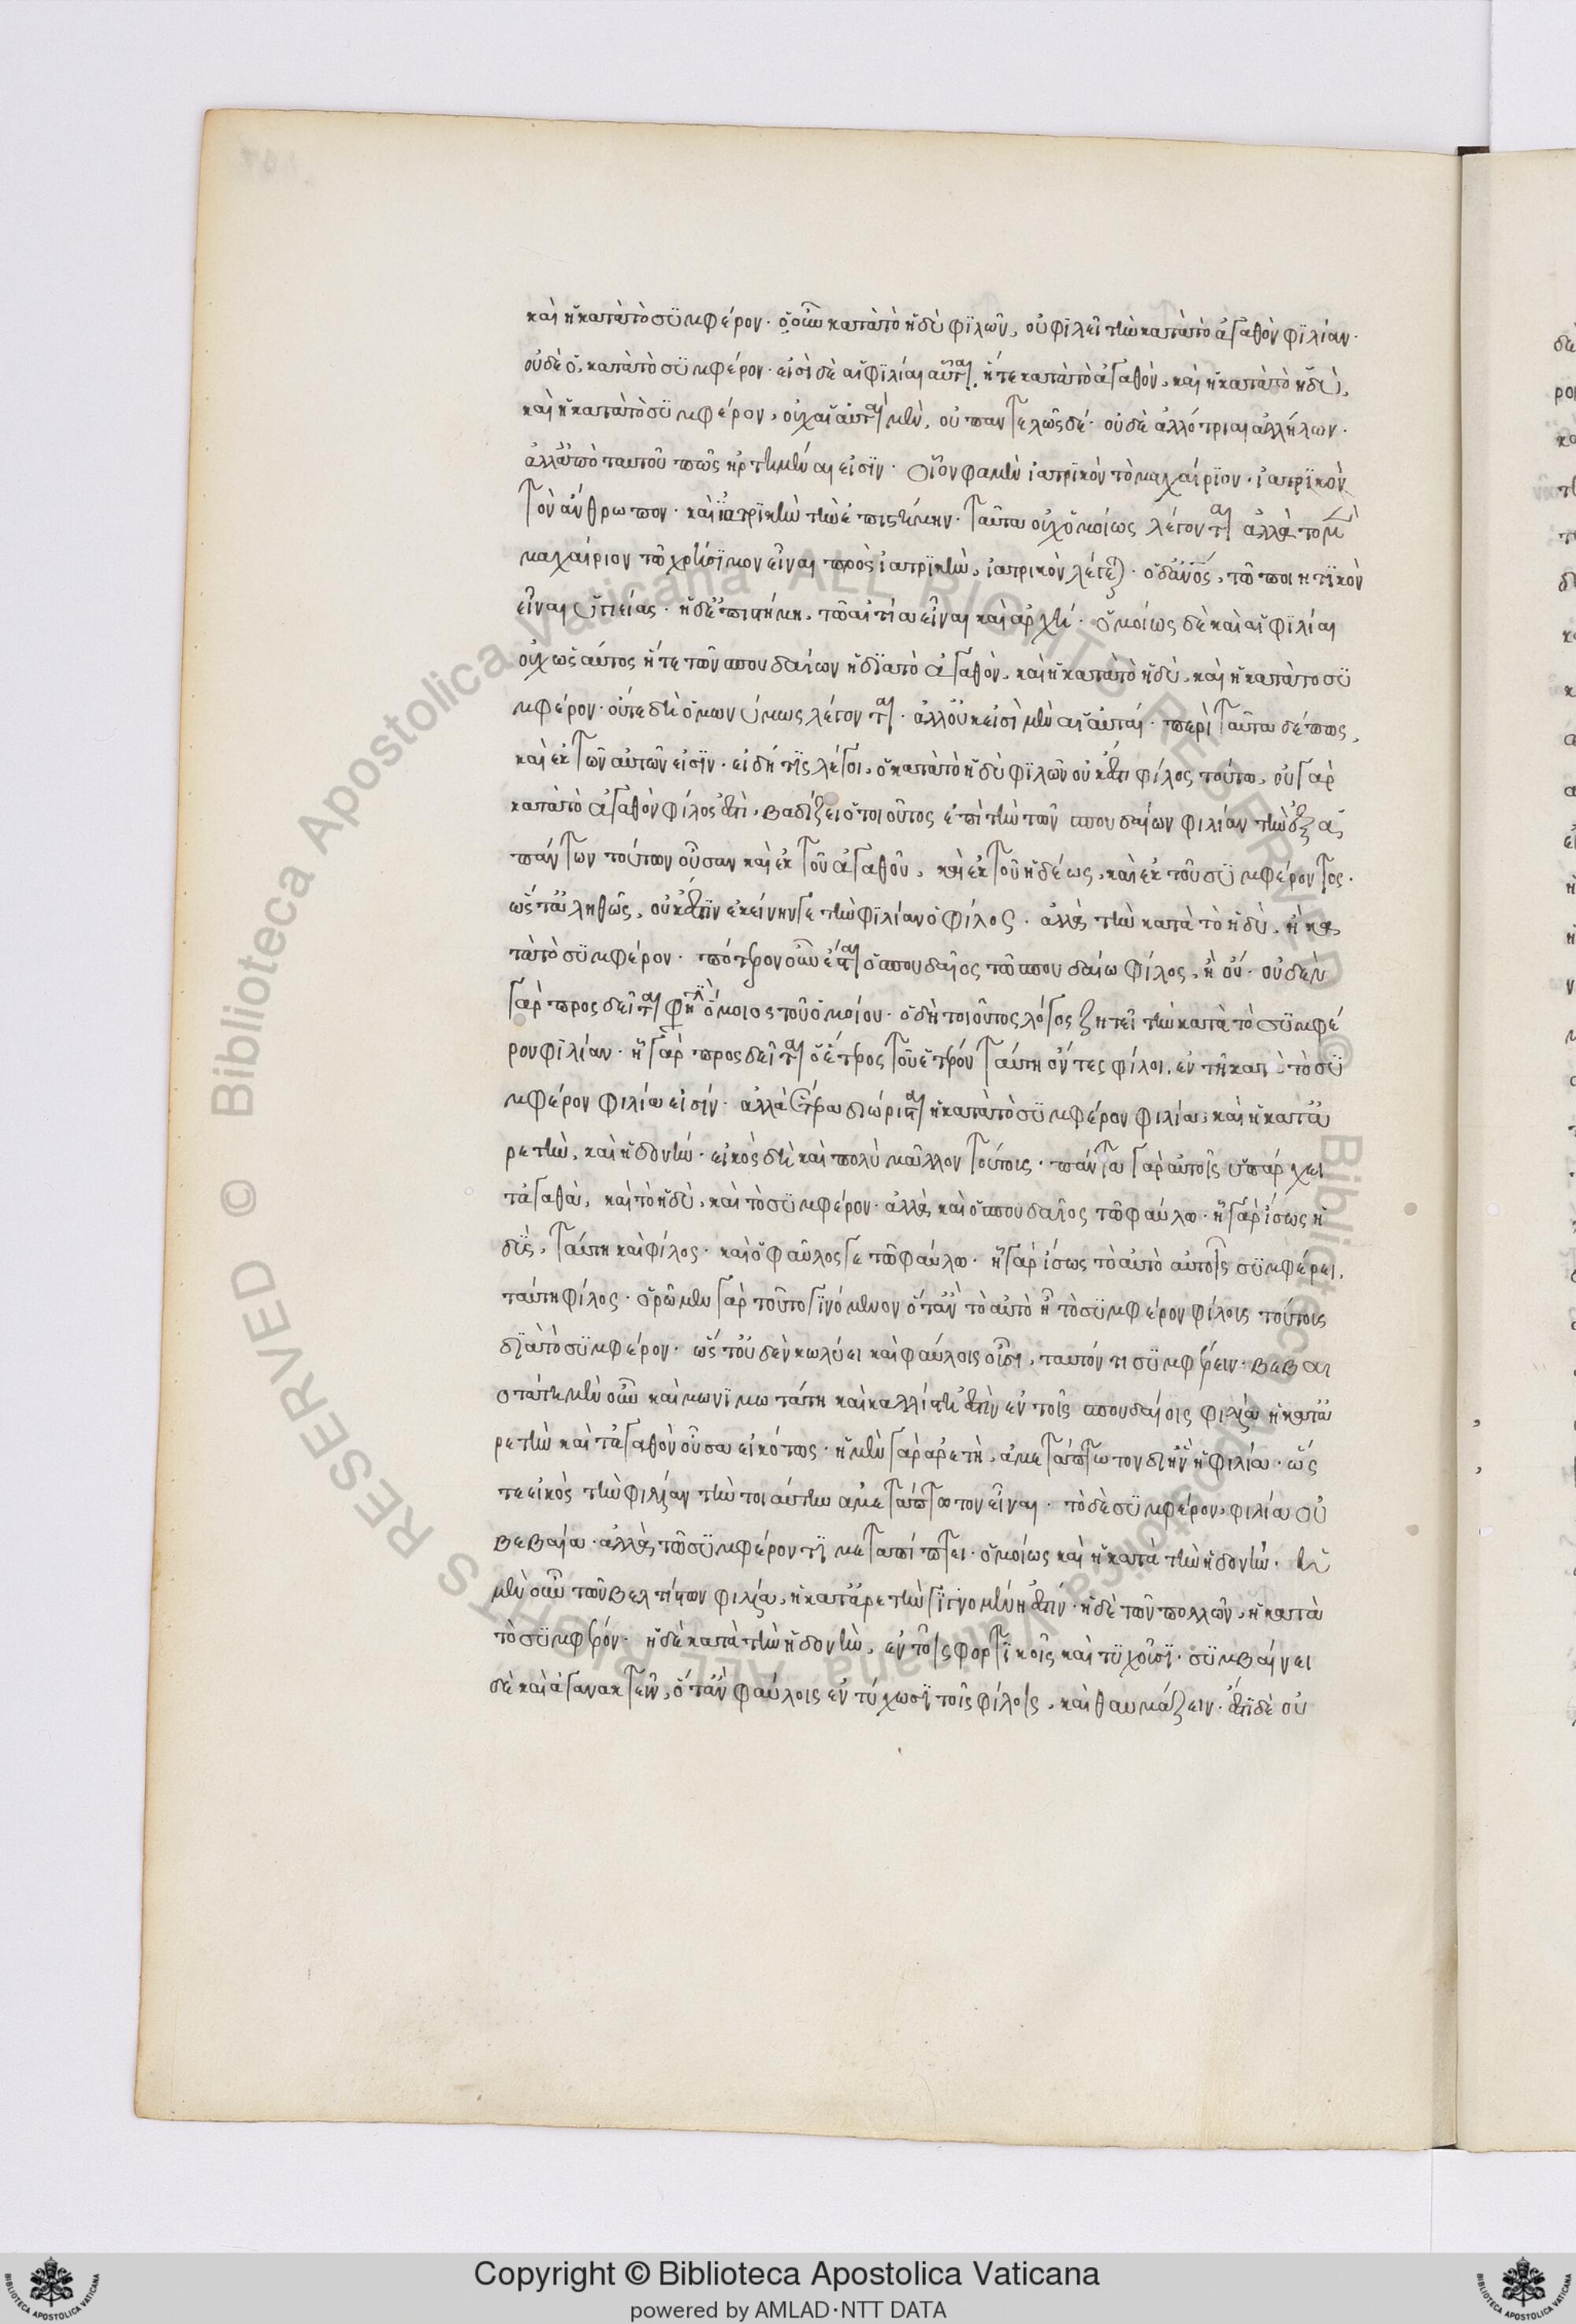 καὶ ἡ κατὰ τὸ συμφέρον· ὁ οὖν κατὰ τὸ ἡδὺ φιλῶν, οὐ φιλεῖ τὴν κατὰ τὸ ἀγαθὸν φιλίαν·
οὐδὲ ὁ κατὰ τὸ συμφέρον· εἰσὶ δὲ αἱ φιλίαι αὗται, ἥ τε κατὰ τὸ ἀγαθὸν, καὶ ἡ κατὰ τὸ ἡδὺ,
καὶ ἡ κατὰ τὸ συμφέρον, οὐχ αἱ αὐταὶ μὲν, οὐ παντελῶς δέ· οὐδὲ ἀλλότριαι ἀλλήλων·
ἀλλ' ἀπὸ ταυτοῦ πῶς ἠρτημέναι εἰσίν· οἷον φαμὲν ἰατρικὸν τὸ μαχαίριον· ἰατρικὸν
τὸν ἄνθρωπον· καὶ ἰατρικὴν τὴν ἐπιστήμην· ταῦτα οὐχ ὁμοίως λέγονται ἀλλὰ τὸ μὲν
μαχαίριον τῷ χρήσιμον εἶναι πρὸς ἰατρικὴν, ἰατρικὸν λέγεται· ὁ δ' ἄνος, τῷ ποιητικὸν
εἶναι ὑγιείας· ἡ δ' ἐπιστήμη, τῷ αἰτία εἶναι καὶ ἀρχή· ὁμοίως δὲ καὶ αἱ φιλίαι
οὐχ ὡσαύτος ἥ τε τῶν σπουδαίων ἡ διὰ τὸ ἀγαθὸν, καὶ ἡ κατὰ τὸ ἡδὺ, καὶ ἡ κατὰ τὸ συ
μφέρον· οὔτε δὴ ὁμωνύμως λέγονται· ἀλλ' οὐκ εἰσὶ μὲν αἱ αὐταί· περὶ ταῦτα δέ πως,
καὶ ἐκ τῶν αὐτῶν εἰσίν· εἰ δή τις λέγοι, ὁ κατὰ τὸ ἡδὺ φιλῶν οὐκ ἔστι φίλος τούτω, οὐ γὰρ
κατὰ τὸ ἀγαθὸν φίλος ἐστὶ, βαδίζει ὁ τοιοῦτος ἐπὶ τὴν τῶν σπουδαίων φιλίαν τὴν ἐξ ἁ
πάντων τούτων οὖσαν καὶ ἐκ τοῦ ἀγαθοῦ, καὶ ἐκ τοῦ ἡδέως, καὶ ἐκ τοῦ συμφέροντος·
ὥστ' ἀληθῶς, οὐκ ἔστιν ἐκείνην γε τὴν φιλίαν ὁ φίλος· ἀλλὰ τὴν κατὰ τὸ ἡδὺ, ἢ κα
τὰ τὸ συμφέρον· πότερον οὖν ἔσται ὁ σπουδαῖος τῷ σπουδαίω φίλος, ἢ οὔ· οὐδὲν
γὰρ προσδεῖται φησὶν ὁ ὅμοιος τοῦ ὁμοίου· ὁ δὴ τοιοῦτος λόγος ζητεῖ τὴν κατὰ τὸ συμφέ
ρον φιλίαν· ᾗ γὰρ προσδεῖται ὁ ἕτερος τοῦ ἑτέρου ταύτη ὄντες φίλοι, ἐν τῇ κατὰ τὸ συ
μφέρον φιλία εἰσίν· ἀλλὰ ἑτέρα διώρισται ἡ κατὰ τὸ συμφέρον φιλία, καὶ ἡ κατ' ἀ
ρετὴν, καὶ ἡδονήν· εἰκὸς δὴ καὶ πολὺ μᾶλλον τούτοις· πάντα γὰρ αὐτοῖς ὑπάρχει
τἀγαθὰ, καὶ τὸ ἡδὺ, καὶ τὸ συμφέρον· ἀλλὰ καὶ ὁ σπουδαῖος τῷ φαύλω· ᾗ γὰρ ἴσως ἡ
δὺς, ταύτη καὶ φίλος· καὶ ὁ φαῦλος γε τῷ φαύλω· ᾗ γὰρ ἴσως τὸ αὐτὸ αὐτοῖς συμφέρει,
ταύτη φίλος· ὁρῶμεν γὰρ τοῦτο γινόμενον ὅταν τὸ αὐτὸ ᾖ τὸ συμφέρον φίλοις τούτοις
διὰ τὸ συμφέρον· ὥστ' οὐδὲν κωλύει καὶ φαύλοις οὖσι, ταυτόν τι συμφέρειν· βεβαι
οτάτη μὲν οὖν καὶ μονιμωτάτη καὶ καλλίστη ἐστὶν ἐν τοῖς σπουδαίοις φιλία ἡ κατ' ἀ
ρετὴν καὶ τἀγαθὸν οὖσα εἰκότως· ἡ μὲν γὰρ ἀρετὴ, ἀμετάπτωτον δι' ἣν ἡ φιλία· ὥσ
τε εἰκὸς τὴν φιλίαν τὴν τοιαύτην ἀμετάπτωτον εἶναι· τὸ δὲ συμφέρον, φιλία οὐ
βεβαία· ἀλλὰ τῷ συμφέροντι μεταπίπτει· ὁμοίως καὶ ἡ κατὰ τὴν ἡδονήν· ἡ
μὲν οὖν τῶν βελτίστων φιλία, ἡ κατ' ἀρετὴν γιγνομένη ἐστίν· ἡ δὲ τῶν πολλῶν, ἡ κατὰ
τὸ συμφέρον· ἡ δὲ κατὰ τὴν ἡδονὴν, ἐν τοῖς φορτικοῖς καὶ τυχοῦσι· συμβαίνει
δὲ καὶ ἀγανακτεῖν, ὅταν φαύλοις ἐντύχωσι τοῖς φίλοις, καὶ θαυμάζειν· ἔστι δὲ οὐ
Copyright © Biblioteca Apostolica Vaticana
powered by AMLAD·NTT DATA